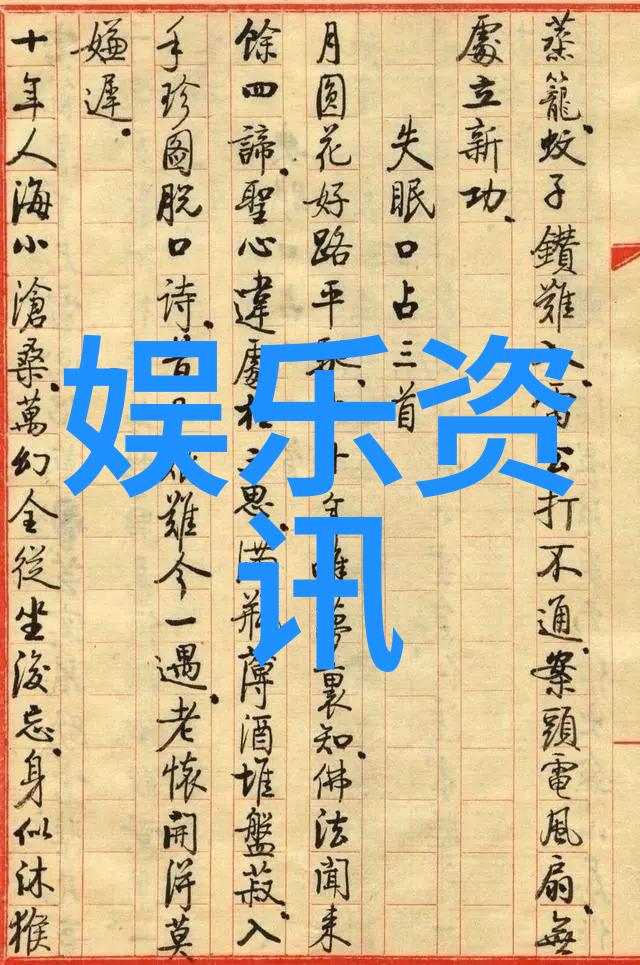 蒸籠、蚊子鑽難雷公打不通、案頭電風扇、無
處立新功、
失眠口占三首
月圓花好路平年唯夢裏知、佛法聞来
餘四諦、聖心違處枉三思、满瓶薄酒堆盤菽、入
手珍圖脱口诗、昔難今一遇、老懷開得莫
嫌遲、
十年人海小滄桑、萬幻全從坐後忘、身似沐猴
娱乐资
讯